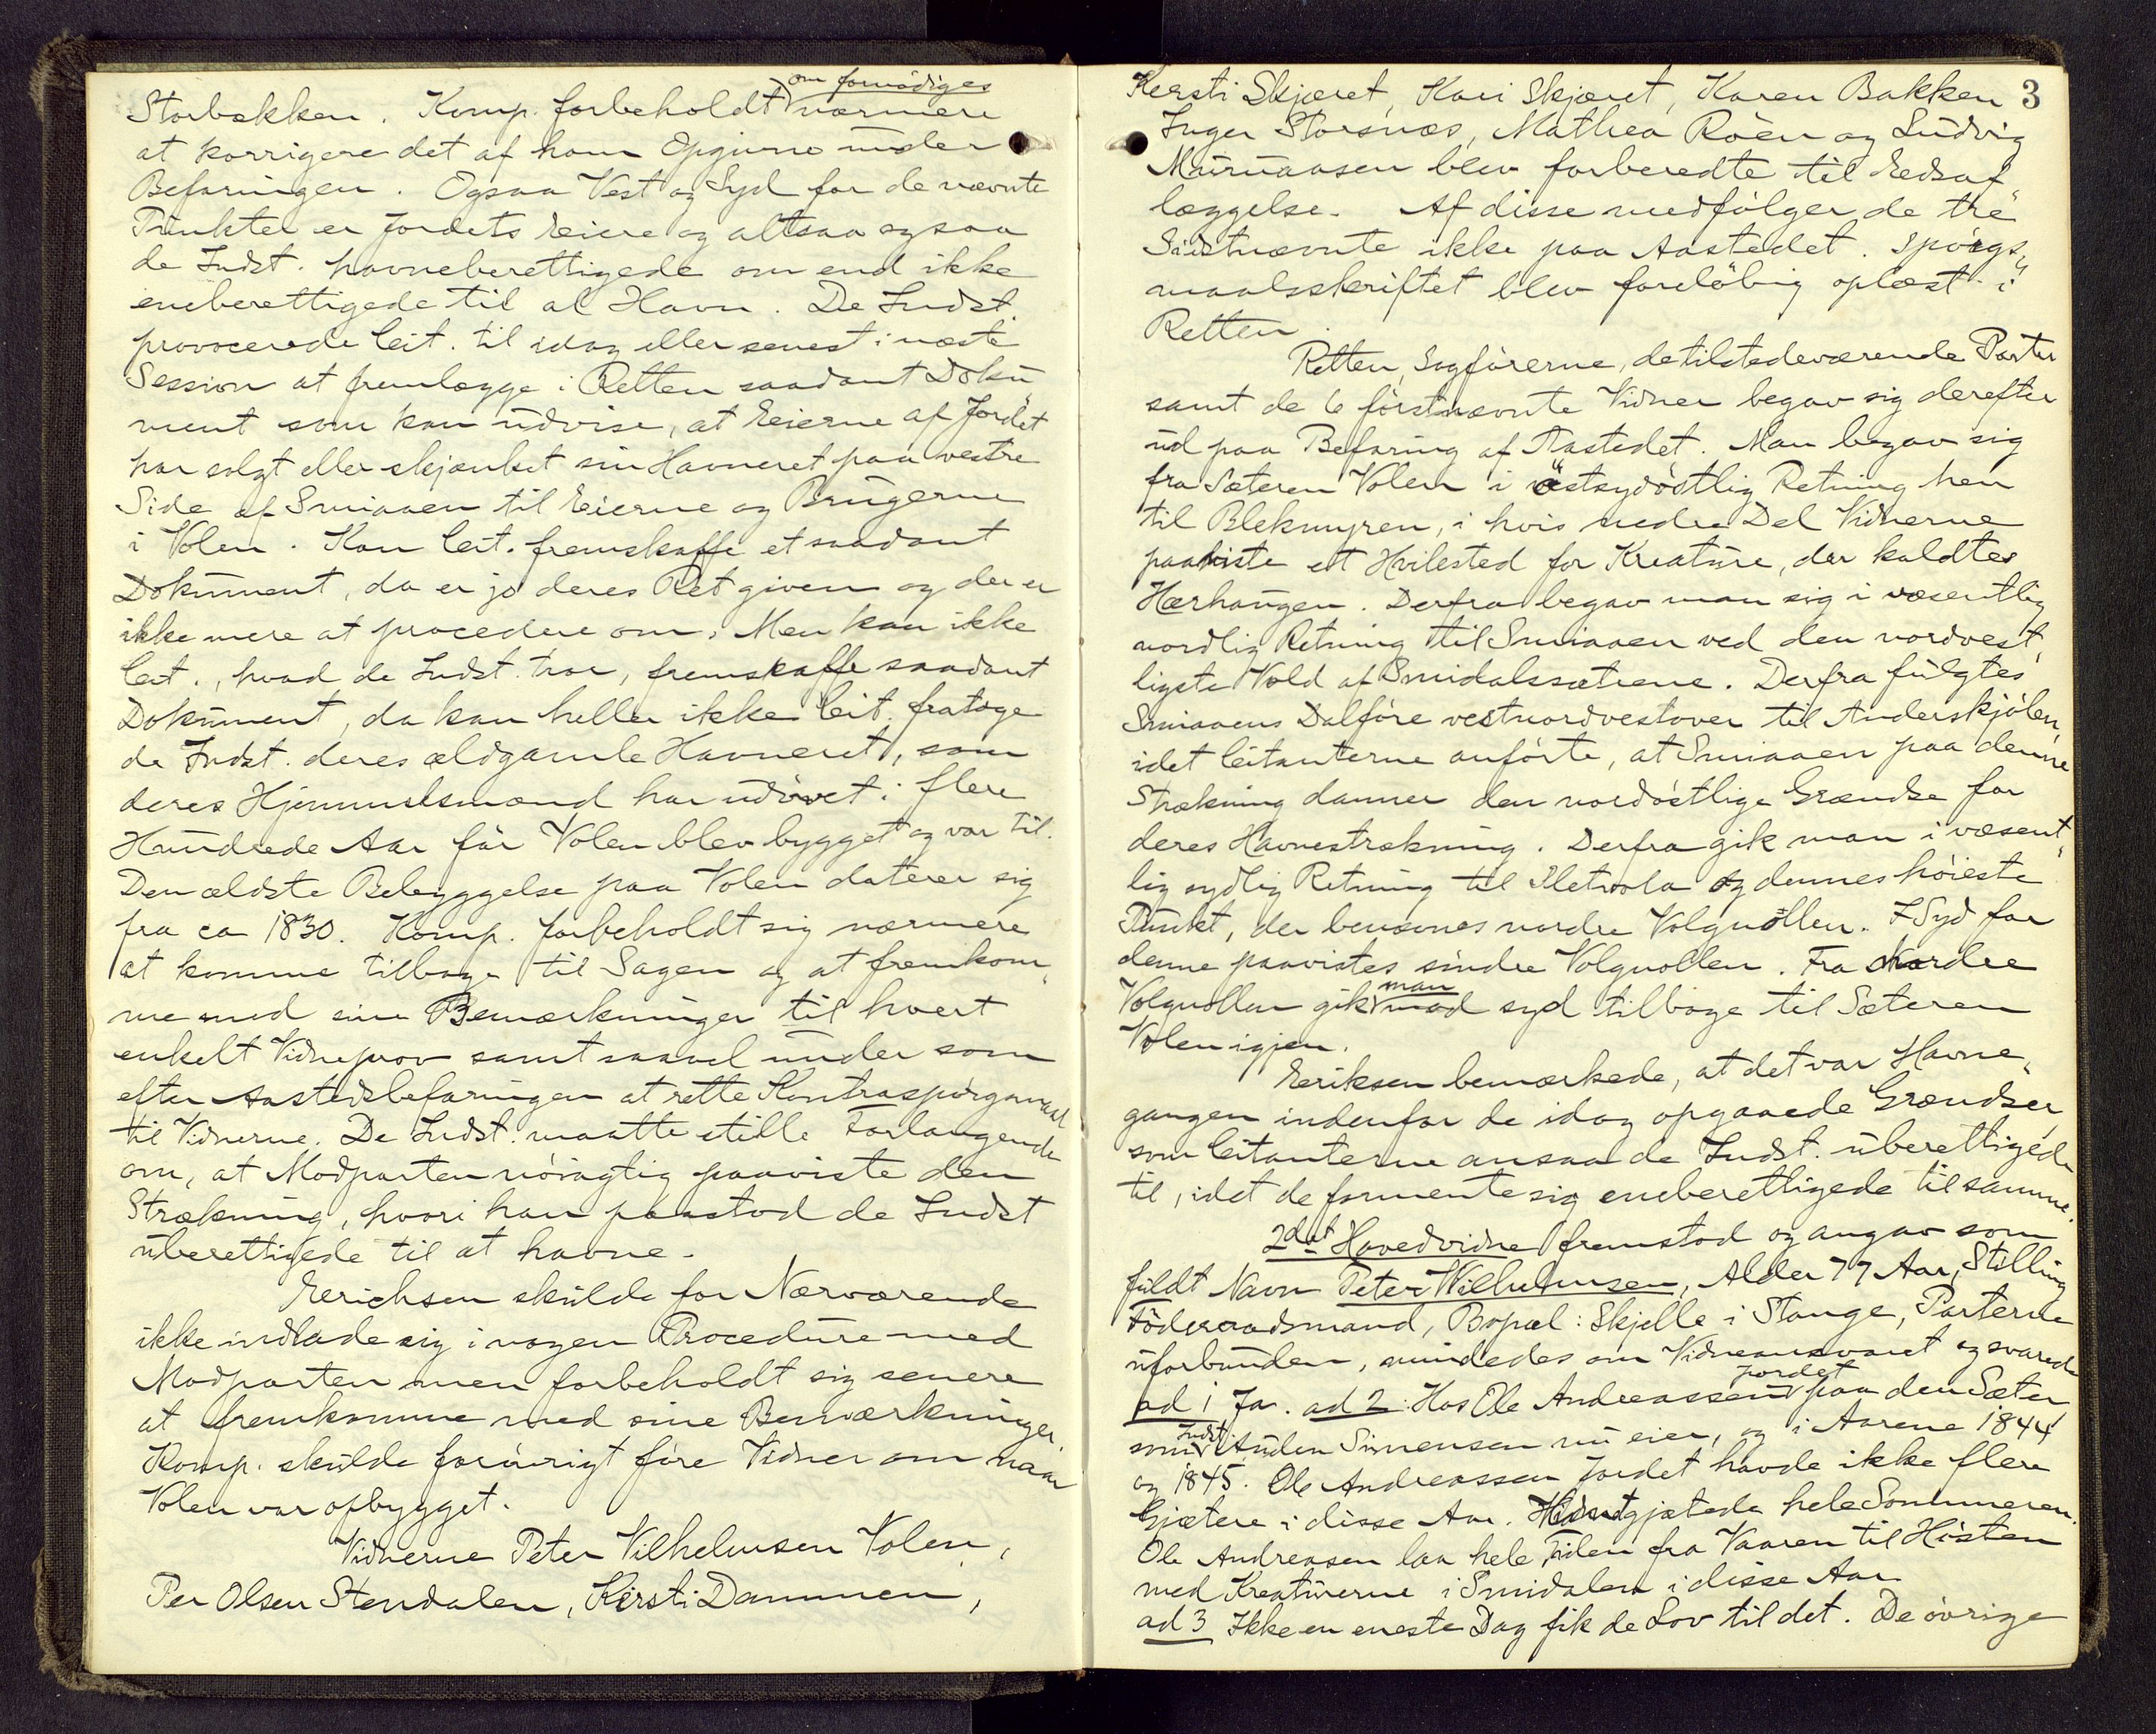 om fornødiges
Storbækken. Komp. forbeholdt nærmere
at korrigere det af ham Opgivne under
Befaringen. Ogsaa Vest og Syd for de nævnte
Punkter er Jordets Eiere og altsaa ogsaa
de Indst. havneberettigede om end ikke
eneberettigede til al Havn. De Indst.
provocerede Cit. til idag eller senest i næste
Session at fremlægge i Retten saadant Doku-
ment som kan udvise, at Eierne af Jordet
har solgt eller skjænket sin Havneret paa vestre
Side af Smiaaen til Eierne og Brugerne
i Volen. Kan Cit. fremskaffe et saadant
Dokument, da er jo deres Ret given og der er
ikke mere at procedere om. Men kan ikke
Cit., hvad de Indst. tror, fremskaffe saadant
Dokument, da kan heller ikke Cit. fratage
de Indst. deres ældgamle Havneret, som
deres Hjemmelsmænd har udøvet i flere
Hundrede Aar før Volen blev bygget og var til.
Den ældste Bebyggelse paa Volen daterer sig
fra ca 1830. Komp. forbeholdt sig nærmere
at komme tilbage til Sagen og at fremkom-
me med sine Bemærkninger til hvert
enkelt Vidneprov samt saavel under som
efter Aastedsbefaringen at rette Kontraspørgsmaal
til Vidnerne. De Indst. maatte stille Forlangende
om, at Modparten nøiagtig paaviste den
Strækning, hvori han paastod de Indst
uberettigede til at havne.
Erichsen skulde for Nærværende
ikke indlade sig i nogen Procedure med
Modparten men forbeholdt sig senere
at fremkomme med sine Bemærkninger.
Komp. skulde forøvrigt føre Vidner om naar
Volen var opbygget.
Vidnerne Peter Vilhelmsen Volen,
Per Olsen Stendalen, Kirsti Dammen,
3
Kersti Skjæret, Kari Skjæret, Karen Bakken
Inger Storsnæs, Mathea Röen og Ludvig
Muruaasen blev forberedte til Edsaf-
læggelse. Af disse medfølger de tre
Sidstnævnte ikke paa Aastedet. Spørgs-
maalsskriftet blev foreløbig oplæst i
Retten.
Retten, Sagførerne, de tilstedeværende Parter
samt de 6 førstnævnte Vidner begav sig derefter
ud paa Befaring af Aastedet. Man begav sig
fra Sæteren Volen i østsydøstlig Retning hen
til Blekmyren, i hvis nedre Del Vidnerne
paaviste et Hvilested for Kreature, der kaldtes
Hærhaugen. Derfra begav man sig i væsentlig
nordlig Retning til Smiaaen ved den nordvest-
ligste Vold af Smidalssætrene. Derfra fulgtes
Smiaaens Dalføre vestnordvestover til Anderskjølen,
idet Citanterne anførte, at Smiaaen paa denne
Strækning danner den nordøstlige Grændse for
deres Havnestrækning. Derfra gik man i væsent-
lig sydlig Retning til Sletvola og dennes høieste
Punkt, der benævnes nordre Volgnollen. I Syd for
denne paavistes søndre Volgnollen. Fra Nordre
man
Volgnollen gik mod syd tilbage til Sæteren
Volen igjen.
Eriksen bemærkede, at det var Havne-
gangen indenfor de idag opgaaede Grændser,
som Citanterne ansaa de Indst. uberettigede
til, idet de formente sig eneberettigede til samme.
2det Hovedvidne fremstod og angav som
fuldt Navn Peter Wilhelmsen, Alder 77 Aar, Stilling
Föderaadsmand, Bopæl: Skjelle i Stange, Parterne
uforbunden, mindedes om Vidneansvaret og svarede
Jordet
ad 1 Ja. ad 2: Hos Ole Andreassen paa den Sæter
Indst.
som Auden Simensen nu eier, og i Aarene 1844
og 1845. Ole Andreassen Jordet havde ikke flere
Gjætere i disse Aar. Vidnet gjætede hele Sommeren.
Ole Andreasen laa hele Tiden fra Vaaren til Høsten
med Kreaturerne i Smidalen i disse Aar
ad 3 Ikke en eneste Dag fik de Lov til det. De øvrige